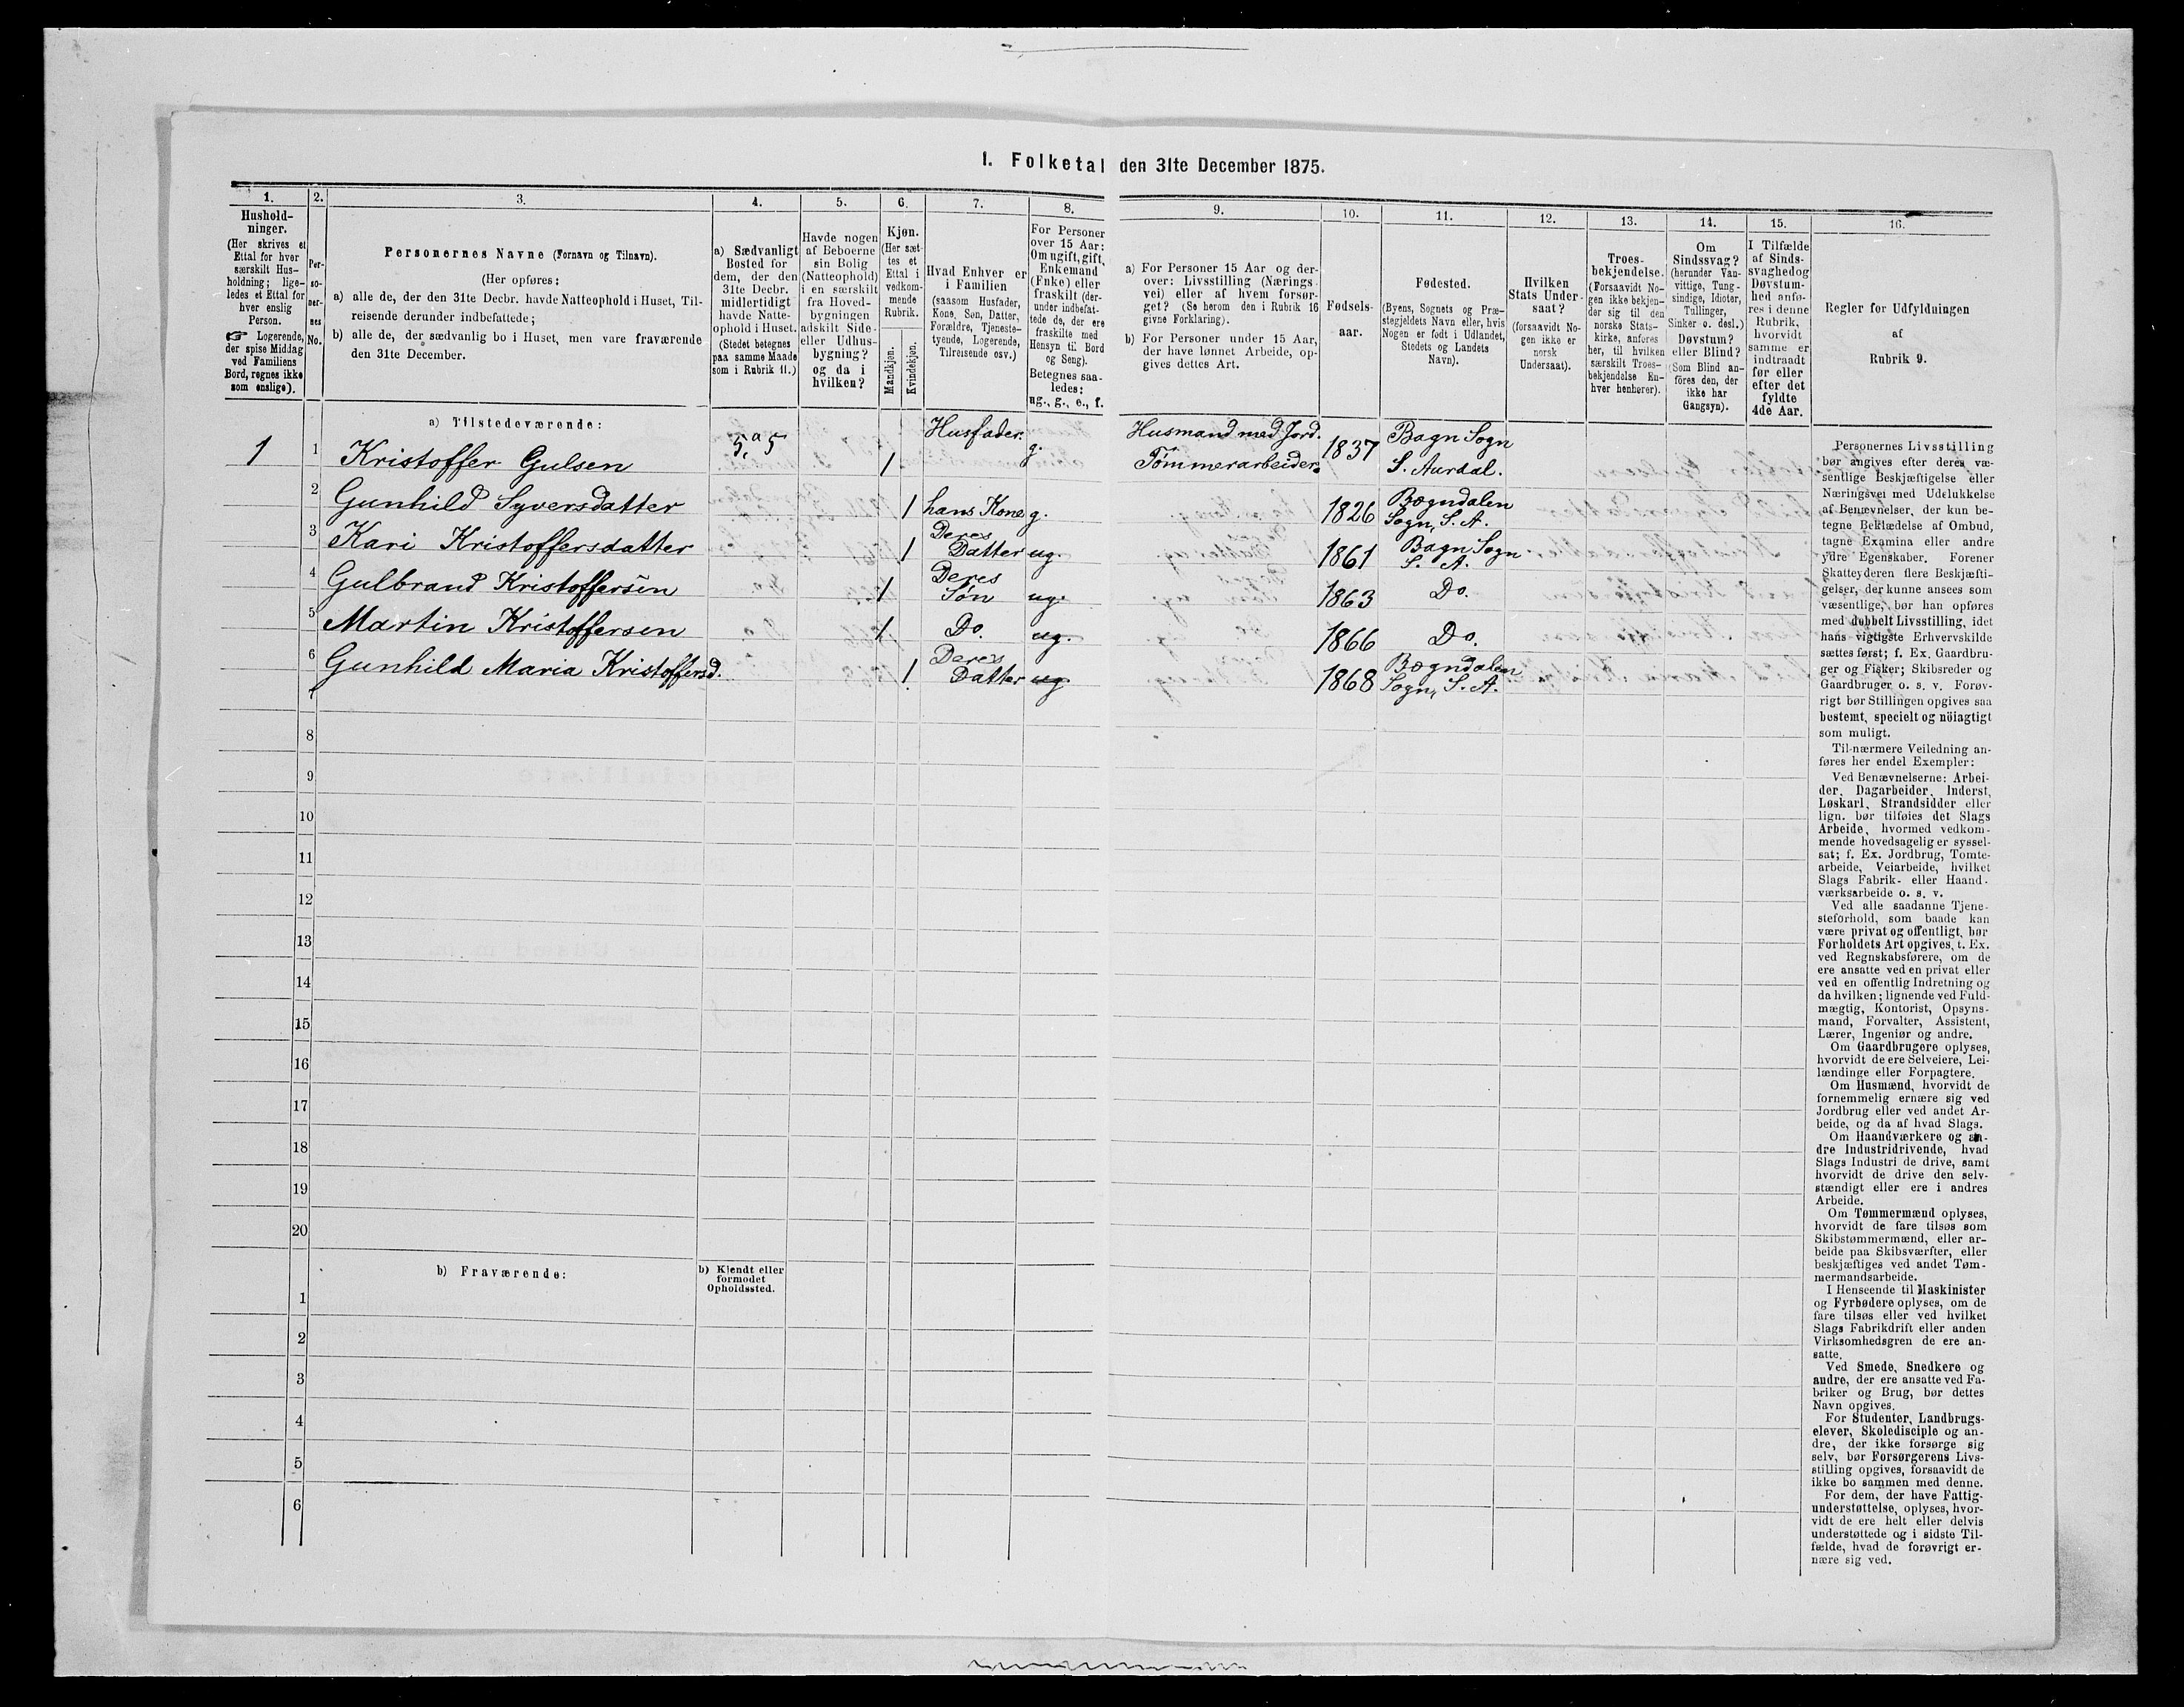 1. Folketal den 31te December 1875.
1.
Hushold-
ninger.
(Her skrives et
Ettal for hver
særskilt Hus-
holdning; lige-
ledes et Ettal for
hver enslig
Person.
☞ Logerende,
der spise Middag
ved Familiens
Bord, regnes ikke
som enslige).
2.
Per-
so-
ner-
nes
No.
3.
Personernes Navne (Fornavn og Tilnavn).
(Her opføres:
a) alle de, der den 31te Decbr. havde Natteophold i Huset, Til-
reisende derunder indbefattede;
b) alle de, der sædvanlig bo i Huset, men vare fraværende
den 31te December.
4.
a) Sædvanligt
Bosted for
dem, der den
31te Decbr.
midlertidigt
havde Natte-
ophold i Huset.
(Stedet betegnes
paa samme Maade
som i Rubrik 11.)
5.
Havde nogen
af Beboerne
sin Bolig
(Natteophold)
i en særskilt
fra Hoved-
bygningen
adskilt Side-
eller Udhus-
bygning?
og da i
hvilken?
6.
Kjøn.
(Her sæt-
tes et
Ettal i
vedkom-
mende
Rubrik.
Mandkjøn.
Kvindekjøn.
7.
Hvad Enhver er
i Familien
(saasom Husfader,
Kone, Søn, Datter,
Forældre, Tjeneste-
tyende, Logerende,
Tilreisende osv.)
8.
For Personer
over 15 Aar:
Om ugift, gift,
Enkemand
(Enke) eller
fraskilt (der-
under indbefat-
tede de, der ere
fraskilte med
Hensyn til Bord
og Seng).
Betegnes saa-
ledes:
ug., g., e., f.
9.
a) For Personer 15 Aar og der-
over: Livsstilling (Nærings-
vei) eller af hvem forsør-
get? (Se herom den i Rubrik 16
givne Forklaring).
b) For Personer under 15 Aar,
der have lønnet Arbeide, op-
gives dettes Art.
10.
Fødsels-
aar.
11.
Fødested.
(Byens, Sognets og Præ-
stegjeldets Navn eller, hvis
Nogen er født i Udlandet,
Stedets og Landets
Navn).
12.
Hvilken
Stats Under-
saat?
(forsaavidt No-
gen ikke er
norsk
Undersaat).
13.
Troes-
bekjendelse.
(Forsaavidt No-
gen ikke bekjen-
der sig til den
norske Stats-
kirke, anføres
her, til hvilken
særskilt Troes-
bekjendelse En-
hver henhører).
14.
Om
Sindssvag?
(herunder Van-
vittige, Tung-
sindige, Idioter,
Tullinger,
Sinker o. desl.)
Døvstum?
eller Blind?
(Som Blind an-
føres den, der
ikke har
Gangsyn).
15.
I Tilfælde
af Sinds-
svaghed og
Døvstum-
hed anfø-
res i denne
Rubrik,
hvorvidt
samme er
indtraadt
før eller
efter det
fyldte
4de Aar.
16.
Regler for Udfyldningen
af
Rubrik 9.
a) Tilstedeværende:
1 1 Kristoffer Gulsen 5,a 5 1 Husfader. g. Husmand med Jord. Tømmerarbeider. 1837 Bagn Sogn S. Aurdal.
2 Gunhild Syversdatter 1 hans Kone g. 1826 Bægndalen Sogn, S. A.
3 Kari Kristoffersdatter 1 Deres Datter ug. 1861 Bagn Sogn S. A.
4 Gulbrand Kristoffersen 1 Deres Søn ug. 1863 Do.
5 Martin Kristoffersen 1 Do. ug. 1866 Do.
6 Gunhild Maria Kristoffersd. 1 Deres Datter ug 1868 Bægndalen Sogn, S. A.
7
8
9
10
11
12
13
14
15
16
17
18
19
20
b) Fraværende:
b) Kjendt eller
formodet
Opholdssted.
1
2
3
4
5
6
Personernes Livsstilling
bør angives efter deres væ-
sentlige Beskjæftigelse eller
Næringsvei med Udelukkelse
af Benævnelser, der kun be-
tegne Beklædelse af Ombud,
tagne Examina eller andre
ydre Egenskaber. Forener
Skatteyderen flere Beskjæfti-
gelser, der kunne ansees som
væsentlige, bør han opføres
med dobbelt Livsstilling, idet
hans vigtigste Erhvervskilde
sættes først; f. Ex. Gaardbru-
ger og Fisker; Skibsreder og
Gaardbruger o. s. v. Forøv-
rigt bør Stillingen opgives saa
bestemt, specielt og nöiagtigt
som muligt.
Til nærmere Veiledning an-
føres her endel Exempler:
Ved Benævnelserne: Arbei-
der, Dagarbeider, Inderst,
Løskarl, Strandsidder eller
lign. bør tilføies det Slags
Arbeide, hvormed vedkom-
mende hovedsagelig er syssel-
sat; f. Ex. Jordbrug, Tomte-
arbeide, Veiarbeide, hvilket
Slags Fabrik- eller Haand-
værksarbeide o. s. v.
Ved alle saadanne Tjene-
steforhold, som baade kan
være privat og offentligt, bør
Forholdets Art opgives, t. Ex.
ved Regnskabsførere, om de
ere ansatte ved en privat eller
ved en offentlig Indretning og
da hvilken; lignende ved Fuld-
mægtig, Kontorist, Opsyns-
mand, Forvalter, Assistent,
Lærer, Ingeniør og andre.
Om Gaardbrugere oplyses,
hvorvidt de ere Selveiere, Lei-
lændinge eller Forpagtere.
Om Husmænd, hvorvidt de
fornemmelig ernære sig ved
Jordbrug eller ved andet Ar-
beide, og da af hvad Slags.
Om Haandværkere og an-
dre Industridrivende, hvad
Slags Industri de drive, samt
hvorvidt de drive den selv-
stændigt eller ere i andres
Arbeide.
Om Tømmermænd oplyses,
hvorvidt de fare tilsøs som
Skibstømmermænd, eller ar-
beide paa Skibsværfter, eller
beskjæftiges ved andet Tøm-
mermandsarbeide.
I Henseende til Maskinister
og Fyrbødere oplyses, om de
fare tilsøs eller ved hvilket
Slags Fabrikdrift eller anden
Virksomhedsgren de ere an-
satte.
Ved Smede, Snedkere og
andre, der ere ansatte ved Fa-
briker og Brug, bør dettes
Navn opgives.
For Studenter, Landbrugs-
elever, Skoledisciple og an-
dre, der ikke forsørge sig
selv, bør Forsørgerens Livs-
stilling opgives, forsaavidt de
ikke bo sammen med denne.
For dem, der have Fattig-
understøttelse, oplyses, hvor-
vidt de ere helt eller delvis
understøttede og i sidste Til-
fælde, hvad de forøvrigt er-
nære sig ved.